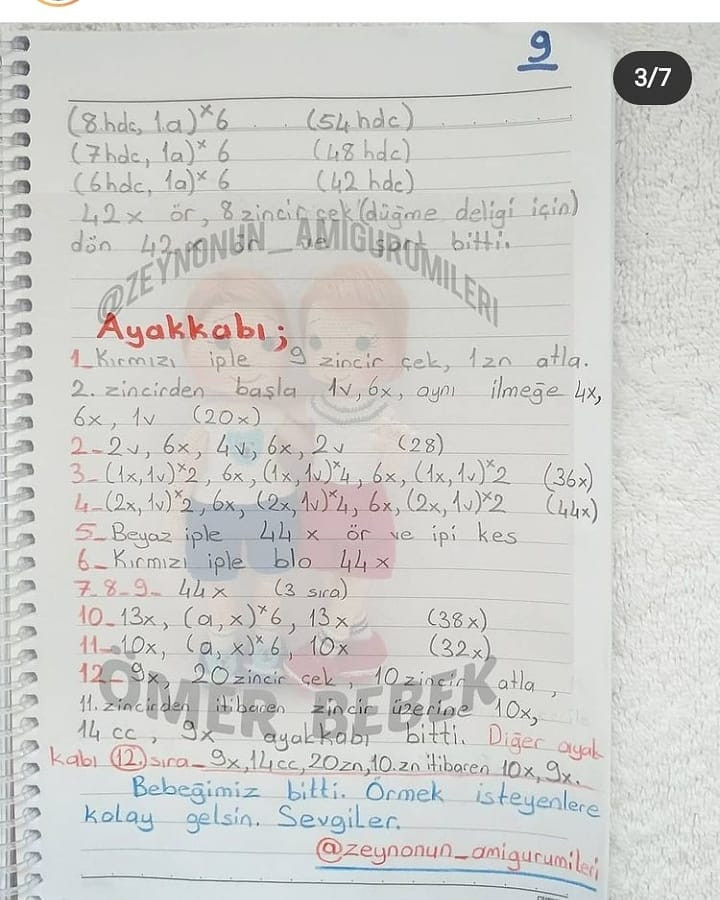 9
3/7
(8 hdc, 1a)ˣ6 (54 hdc)
(7hdc, 1a)ˣ 6 (48 hdc)
(6hdc, 1a)ˣ 6 (42 hdc)
42x ör, 8 zincir çek (düğme deligi için)
dön 42 ör ve şort bitti.
@ZEYNONUN_AMIGURUMILERI
Ayakkabı;
1_Kırmızı iple 9 zincir çek, 1zn atla.
2. zincirden başla 1v, 6x, aynı ilmeğe 4x,
6x, 1v (20x)
2-2v, 6x, 4v, 6x, 2v (28)
3-(1x,1v)ˣ2, 6x, (1x,1v)ˣ4, 6x, (1x,1v)ˣ2 (36x)
4-(2x,1v)ˣ2, 6x, (2x,1v)ˣ4, 6x, (2x,1v)ˣ2 (44x)
5_Beyaz iple 44 x ör ve ipi kes
6_Kırmızı iple blo 44x
7-8-9- 44x (3 sıra)
10-13x, (a,x)ˣ6, 13x (38x)
11-10x, (a,x)ˣ6, 10x (32x)
12-9x, 20 zincir çek, 10 zincir atla,
11. zincirden itibaren zincir üzerine 10x,
14 cc, 9x ayakkabı bitti. Diğer ayak
kabı (12) sıra_ 9x,14cc,20zn,10.zn itibaren 10x,9x.
ÖMER BEBEK
Bebeğimiz bitti. Örmek isteyenlere
kolay gelsin. Sevgiler.
@zeynonun_amigurumileri